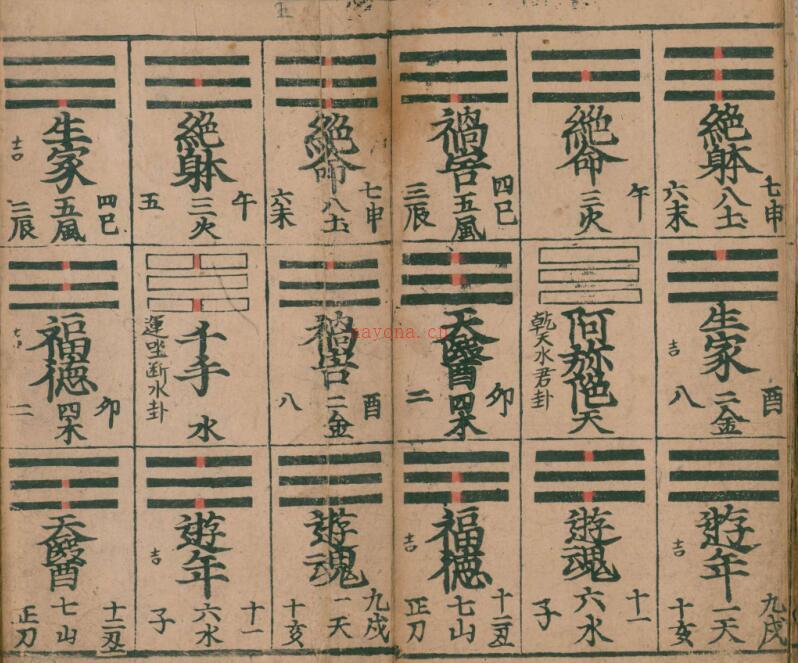 七申
絶躰八土
六未
午
絶命三火
四巳
禍害五風
三辰
酉
生家二金
吉
八
阿弥陀天
乾天水君卦
卯
天醫四木
二
九戌
遊年一天
吉
十亥
十一
遊魂六水
子
十二丑
福徳七山
吉
正刁
七申
絶命八土
六未
午
絶躰三火
五
四巳
生家五風
吉
三辰
酉
禍害二金
八
千手水
運坐断水卦
卯
福徳四木
二
九戌
遊魂一天
十亥
十一
遊年六水
吉
子
十二丑
天醫七山
正刁
nayona.cn